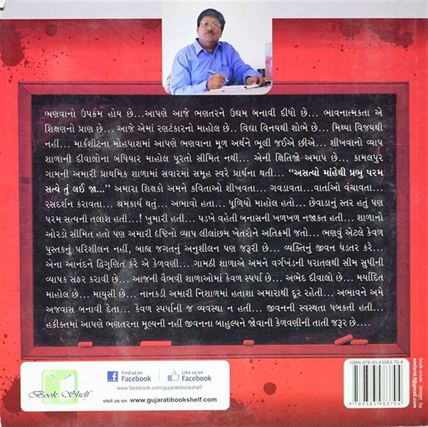 ભણવાનો ઉપક્રમ હોય છે... આપણે આજે ભણતરને ઉદ્યમ બનાવી દીધો છે... ભાવનાત્મકતા એ
શિક્ષણનો પ્રાણ છે... આજે એમાં રણટંકારનો માહોલ છે... વિદ્યા વિનયથી શોભે છે... મિથ્યા વિજયથી
નહીં... માર્કશીટના મોહપાશમાં આપણે ભણવાના મૂળ અર્થને ભૂલી જઈએ છીએ... શીખવાનો વ્યાપ
શાળાની દીવાલોના બંધિયાર માહોલ પૂરતો સીમિત નથી... એની ક્ષિતિજો અમાપ છે... કામલપુર
ગામની અમારી પ્રાથમિક શાળામાં સવારમાં સમૂહ સ્વરે પ્રાર્થના થતી... “અસત્યો માંહેથી પ્રભુ પરમ
સત્યે તું લઈ જા...” અમારા શિક્ષકો અમને કવિતાઓ શીખવતા... ગવડાવતા... વાર્તાઓ વંચાવતા...
રસદર્શન કરાવતા... શ્રમકાર્ય થતું... અભાવો હતા... પૂળિયો માહોલ હતો... છેવાડાનું સ્તર હતું પણ
પરમ સત્યની તલાશ હતી...! ખુમારી હતી... પડખે વહેતી બનાસની ખળખળ નજાકત હતી... શાળાનો
ઓરડો સીમિત હતો પણ અમારી દૃષ્ટિનો વ્યાપ લીલાંછમ ખેતરોને અતિક્રમી જતો... ભણવું એટલે કેવળ
પુસ્તકનું પરિશીલન નહીં, બાહ્ય જગતનું અનુશીલન પણ જરૂરી છે... વ્યક્તિનું જીવન ઘડતર કરે...
એના આનંદને દ્વિગુણિત કરે એ કેળવણી... ગામઠી શાળાએ અમને વર્ગખંડની ધરાતલથી સીમ સુધીની
વ્યાપક સફર કરાવી છે... આજની વૈભવી શાળાઓમાં કેવળ સ્પર્ધા છે... અભેદ દીવાલો છે... મર્યાદિત
માહોલ છે... માયુસી છે... નાનકડી અમારી નિશાળમાં હતાશા અમારાથી દૂર રહેતી... અભાવને અમે
અજવાસ બનાવી દેતા... કેવળ સ્પર્ધાની જ વ્યવસ્થા ન હતી... જીવનની સ્વસ્થતા ધબકતી હતી...
હકીકતમાં આપણે ભણતરના મૂલ્યની નહીં જીવનના બાહુલ્યને જોવાની કેળવણીની તાતી જરૂર છે....
Book Shelf
Find us on
Facebook
Like us on
Facebook
www.facebook.com/gujaratibookshelf
visit us on www.gujaratibookshelf.com
ISBN 978-93-83983-70-4
9 789383 983704